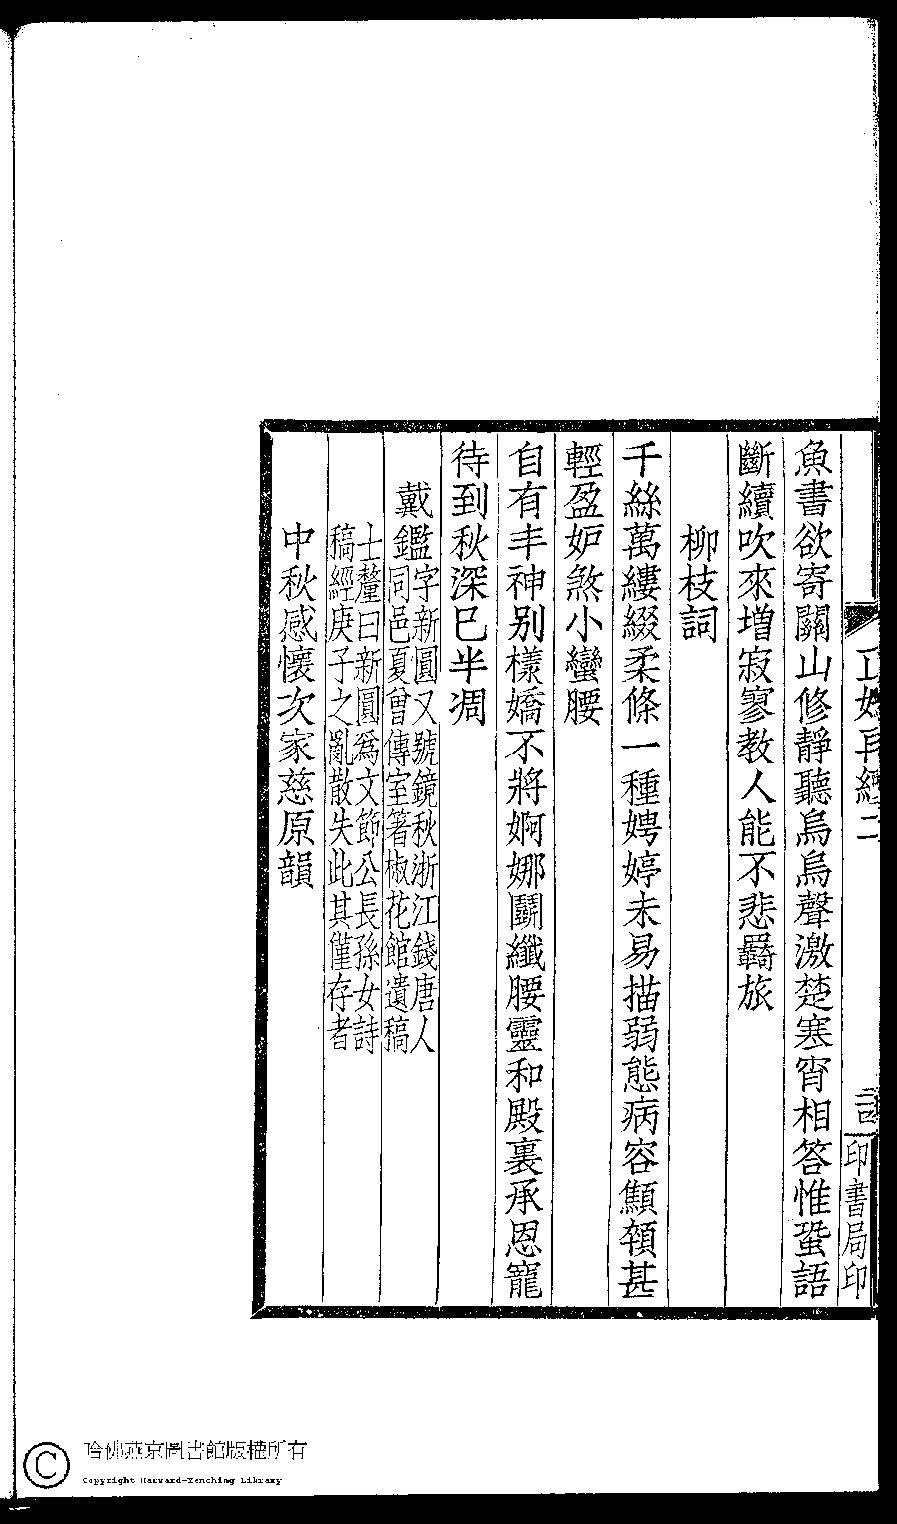 印書局印
魚書欲寄關山修靜聽烏烏聲激楚寒宵相答惟蛩語
斷續吹來增寂寥教人能不悲羈旅
柳枝詞
千絲萬縷綴柔條一種娉婷未易描弱態病容顦顇甚
輕盈妒煞小蠻腰
自有丰神别樣嬌不將婀娜鬭纖腰靈和殿裏承恩寵
待到秋深巳半凋
戴鑑
字新圓又號鏡秋浙江錢唐人
同邑夏曾傳室箸椒花館遺稿
士釐曰新圓爲文節公長孫女詩
稿經庚子之亂散失此其僅存者
中秋感懷次家慈原韻
哈佛燕京圖書館版權所有
Copyright Harvard-Yenching Library